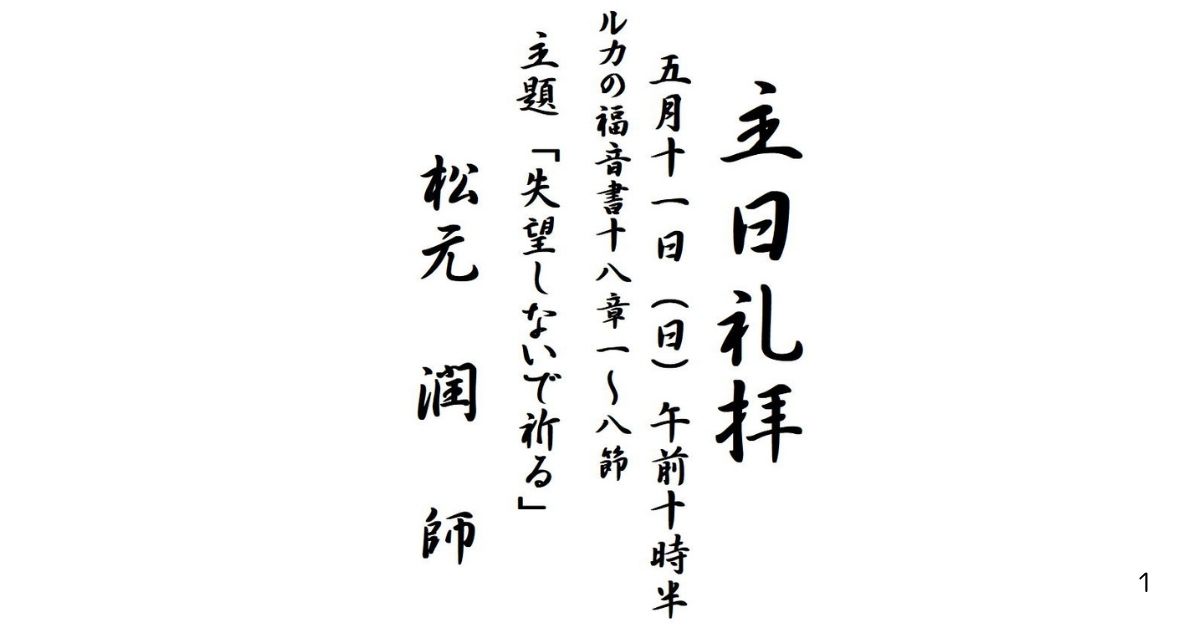 主日礼拝
五月十一日（日）午前十時半
ルカの福音書十八章一〜八節
主題「失望しないで祈る」
松元　潤　師
1